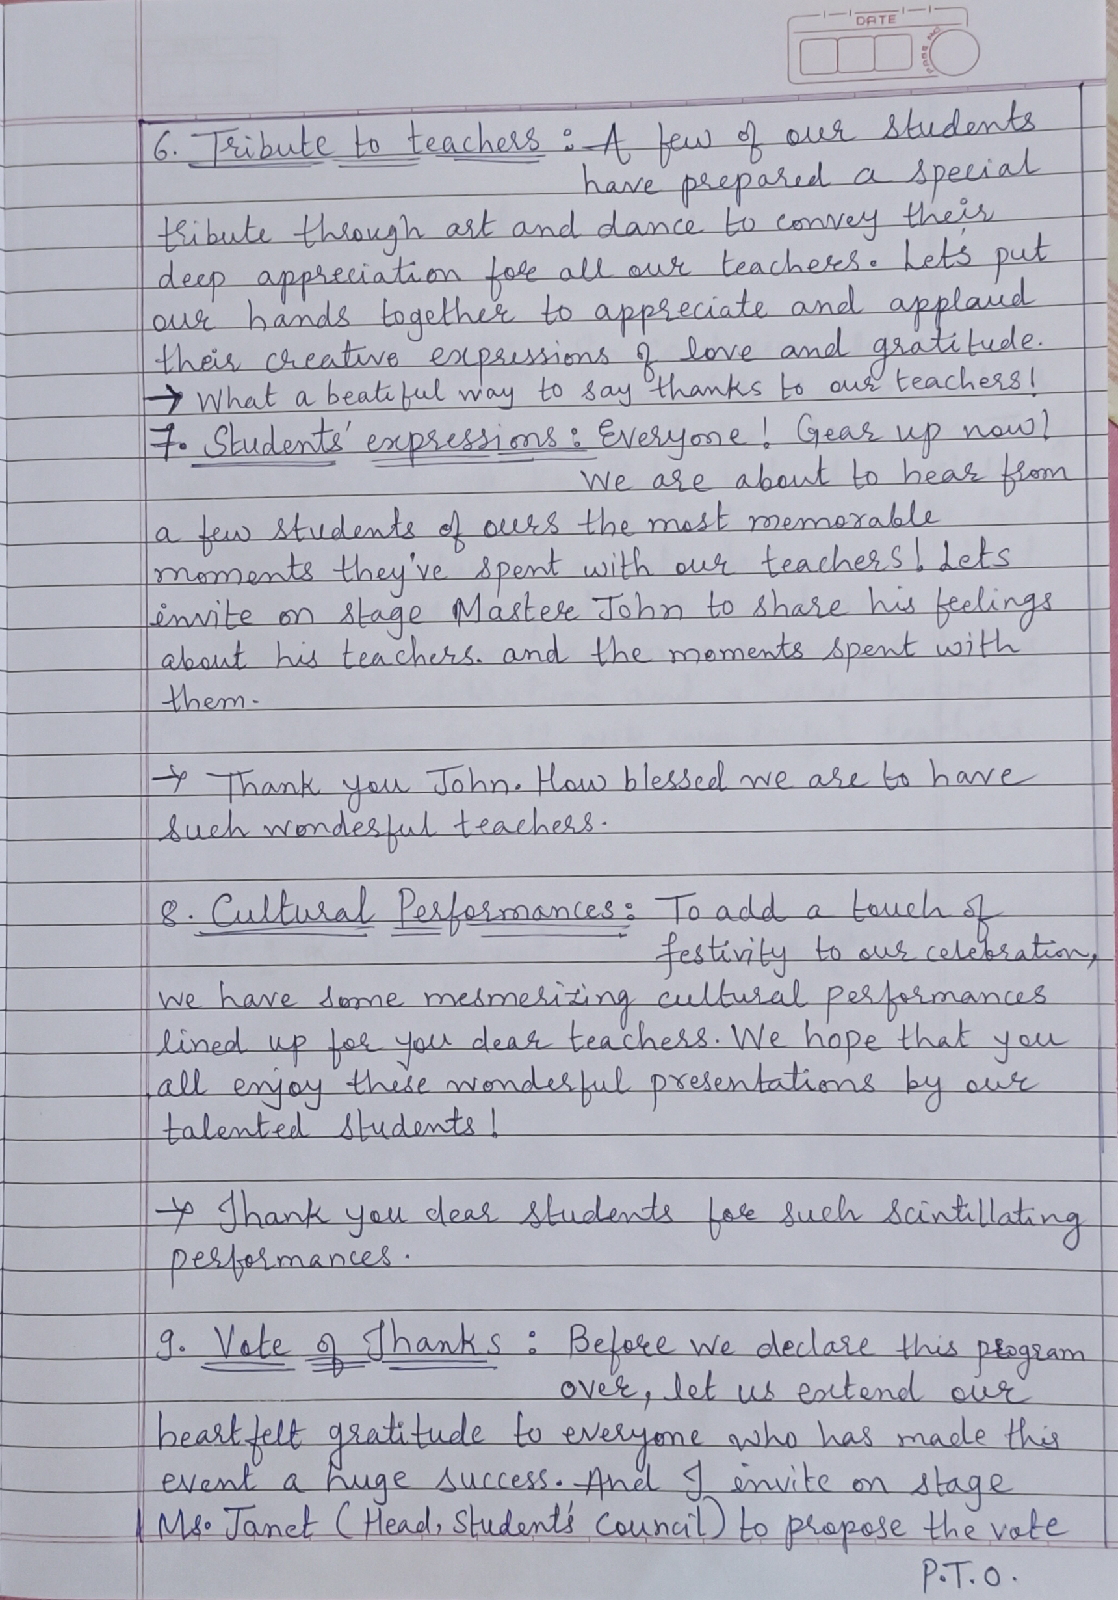 DATE
PAGE NO.
6. Tribute to teachers : A few of our students
have prepared a special
tribute through art and dance to convey their
deep appreciation for all our teachers. Let's put
our hands together to appreciate and applaud
their creative expressions of love and gratitude.
→ What a beatiful way to say thanks to our teachers!
7. Students' expressions : Everyone! Gear up now!
We are about to hear from
a few students of ours the most memorable
moments they've spent with our teachers! Lets
invite on stage Master John to share his feelings
about his teachers. and the moments spent with
them.
→ Thank you John. How blessed we are to have
such wonderful teachers.
8. Cultural Performances : To add a touch of
festivity to our celebration,
we have some mesmerizing cultural performances
lined up for you dear teachers. We hope that you
all enjoy these wonderful presentations by our
talented students!
→ Thank you dear students for such scintillating
performances.
9. Vote of Thanks : Before we declare this program
over, let us extend our
heartfelt gratitude to everyone who has made this
event a huge success. And I invite on stage
Ms. Janet (Head, Student's Council) to propose the vote
P.T.O.